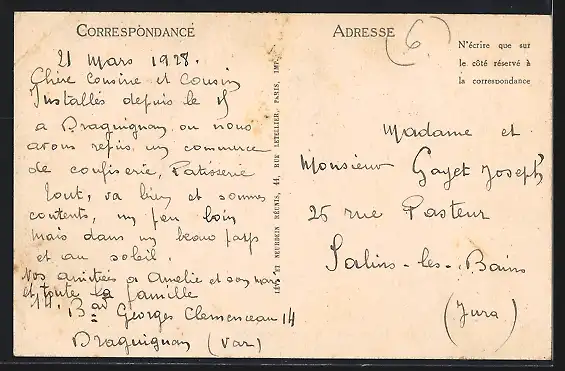 CORRESPONDANCE
21 Mars 1928.
Chère cousine et cousin
Installés depuis le 15
a Draguignan ou nous
avons repris un commerce
de confiserie, Patisserie
tout, va bien et sommes
contents, un peu loin
mais dans un beau pays
et au soleil.
Nos amitiés a Amelie et son mari
et toute la famille
14. Bard Georges Clemenceau 14
Draguignan (Var)
LÉVY ET NEURDEIN RÉUNIS, 44, RUE LETELLIER, PARIS, IMP.
ADRESSE
(6)
N'écrire que sur
le côté réservé à
la correspondance
Madame et
Monsieur Gayet Joseph
25 rue Pasteur
Salins-les-Bains
(Jura)